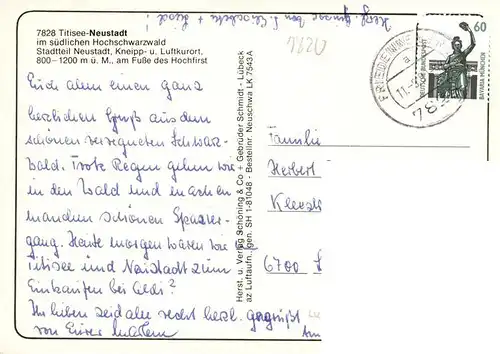 Herzl. Grüsse von
1820
7828 Titisee-Neustadt
im südlichen Hochschwarzwald
Stadtteil Neustadt, Kneipp- u. Luftkurort,
800–1200 m ü. M., am Fuße des Hochfirst
Euch allen einen ganz
herzlichen Gruß aus dem
schönen verregneten Schwarz-
wald. Trotz Regen gehen wir
in den Wald und machen
manchen schönen Spazier-
gang. Heute morgen waren wir in
Titisee und Neustadt zum
Einkaufen bei Aldi
Ihr lieben seid alle recht herzl. gegrüßt
von Eurer
Herst. u. Verlag Schöning & Co + Gebrüder Schmidt - Lübeck
az Luftaufn. gen. SH 1-81048 - Bestellnr. Neuschwa LK 7543A
60
DEUTSCHE BUNDESPOST
BAVARIA MÜNCHEN
FRIEDENW
a
11.
78
Familie
Herbert
6700